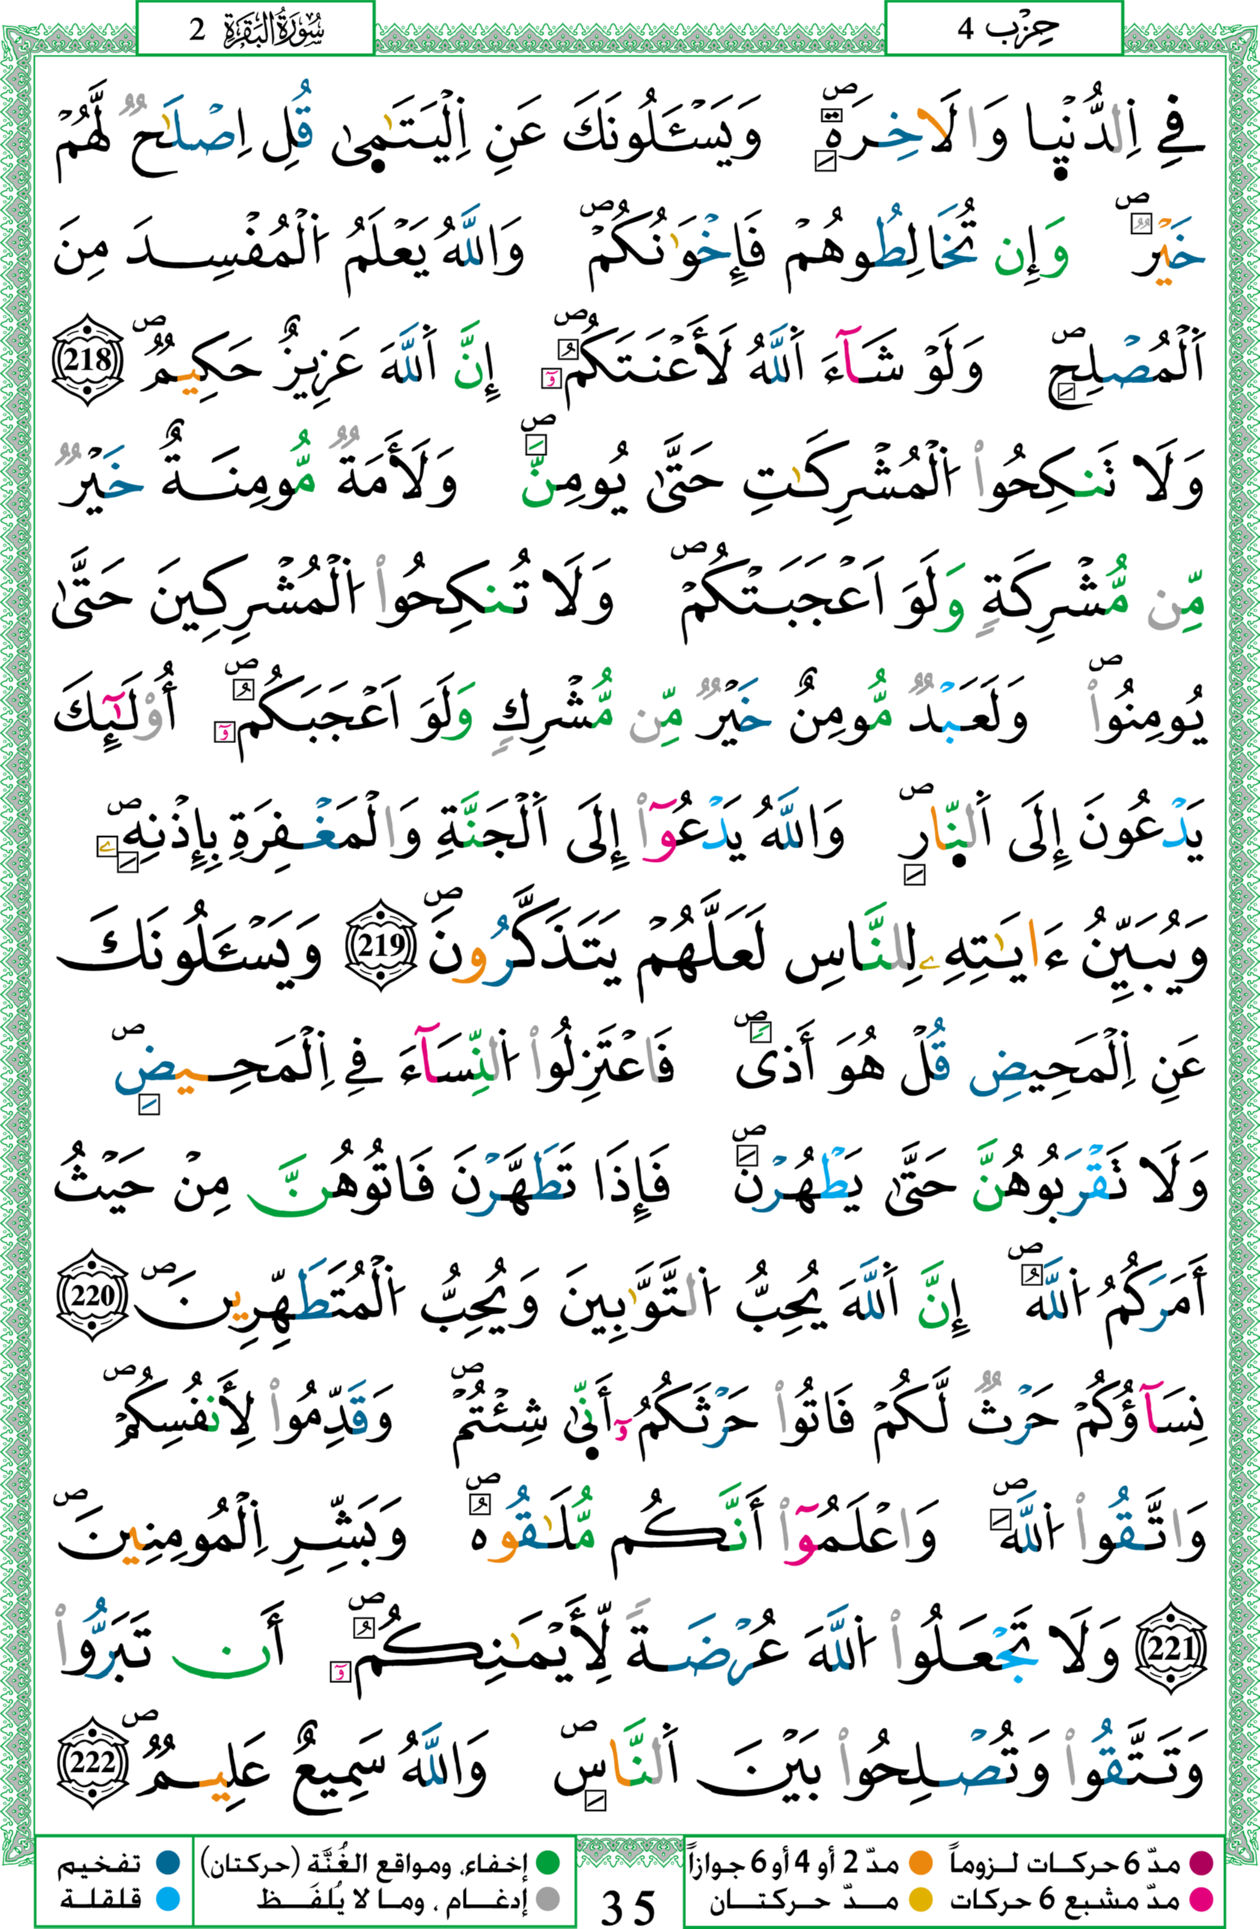 سُورَةُ البَقَرَةِ 2
حِزْب 4
فِے اِ۬لدُّنْي۪ا وَالَاخِرَةِۖ وَيَسْـَٔلُونَكَ عَنِ اِ۬لْيَتَٰم۪ىٰ قُلِ اِصْلَٰحٞ لَّهُمْ
خَيْرٞۖ وَإِن تُخَالِطُوهُمْ فَإِخْوَٰنُكُمْۖ وَاللَّهُ يَعْلَمُ اُ۬لْمُفْسِدَ مِنَ
اَ۬لْمُصْلِحِۖ وَلَوْ شَآءَ اَ۬للَّهُ لَأَعْنَتَكُمُۥٓۖ إِنَّ اَ۬للَّهَ عَزِيزٌ حَكِيمٞۖ 218
وَلَا تَنكِحُواْ اُ۬لْمُشْرِكَٰتِ حَتَّىٰ يُومِنَّۖ وَلَأَمَةٞ مُّومِنَةٌ خَيْرٞ
مِّن مُّشْرِكَةٖ وَلَوَ اَعْجَبَتْكُمْۖ وَلَا تُنكِحُواْ اُ۬لْمُشْرِكِينَ حَتَّىٰ
يُومِنُواْۖ وَلَعَبْدٞ مُّومِنٌ خَيْرٞ مِّن مُّشْرِكٖ وَلَوَ اَعْجَبَكُمُۥٓۖ أُوْلَٰٓئِكَ
يَدْعُونَ إِلَى اَ۬لنّ۪ارِۖ وَاللَّهُ يَدْعُوٓاْ إِلَى اَ۬لْجَنَّةِ وَالْمَغْفِرَةِ بِإِذْنِهِۦۖ
وَيُبَيِّنُ ءَايَٰتِهِۦ لِلنَّاسِ لَعَلَّهُمْ يَتَذَكَّرُونَۖ 219 وَيَسْـَٔلُونَكَ
عَنِ اِ۬لْمَحِيضِ قُلْ هُوَ أَذىٗۖ فَاعْتَزِلُواْ اُ۬لنِّسَآءَ فِے اِ۬لْمَحِيضِۖ
وَلَا تَقْرَبُوهُنَّ حَتَّىٰ يَطْهُرْنَۖ فَإِذَا تَطَهَّرْنَ فَاتُوهُنَّ مِنْ حَيْثُ
أَمَرَكُمُ اُ۬للَّهُۖ إِنَّ اَ۬للَّهَ يُحِبُّ اُ۬لتَّوَّٰبِينَ وَيُحِبُّ اُ۬لْمُتَطَهِّرِينَۖ 220
نِسَآؤُكُمْ حَرْثٞ لَّكُمْ فَاتُواْ حَرْثَكُمُۥٓ أَنّ۪ىٰ شِئْتُمْۖ وَقَدِّمُواْ لِأَنفُسِكُمْۖ
وَاتَّقُواْ اُ۬للَّهَۖ وَاعْلَمُوٓاْ أَنَّكُم مُّلَٰقُوهُۖ وَبَشِّرِ اِ۬لْمُومِنِينَۖ
221 وَلَا تَجْعَلُواْ اُ۬للَّهَ عُرْضَةٗ لِّأَيْمَٰنِكُمُۥٓۖ أَن تَبَرُّواْ
وَتَتَّقُواْ وَتُصْلِحُواْ بَيْنَ اَ۬لنَّاسِۖ وَاللَّهُ سَمِيعٌ عَلِيمٞۖ 222
مدّ 6 حركات لـزوماً مدّ 2 أو 4 أو 6 جوازاً
مدّ مشبع 6 حركات مـدّ حـركتـان
إخفاء، ومواقع الغُنَّة (حركتان) تفخيم
إدغـام ، ومـا لا يُلفَـظ قلقلة
35